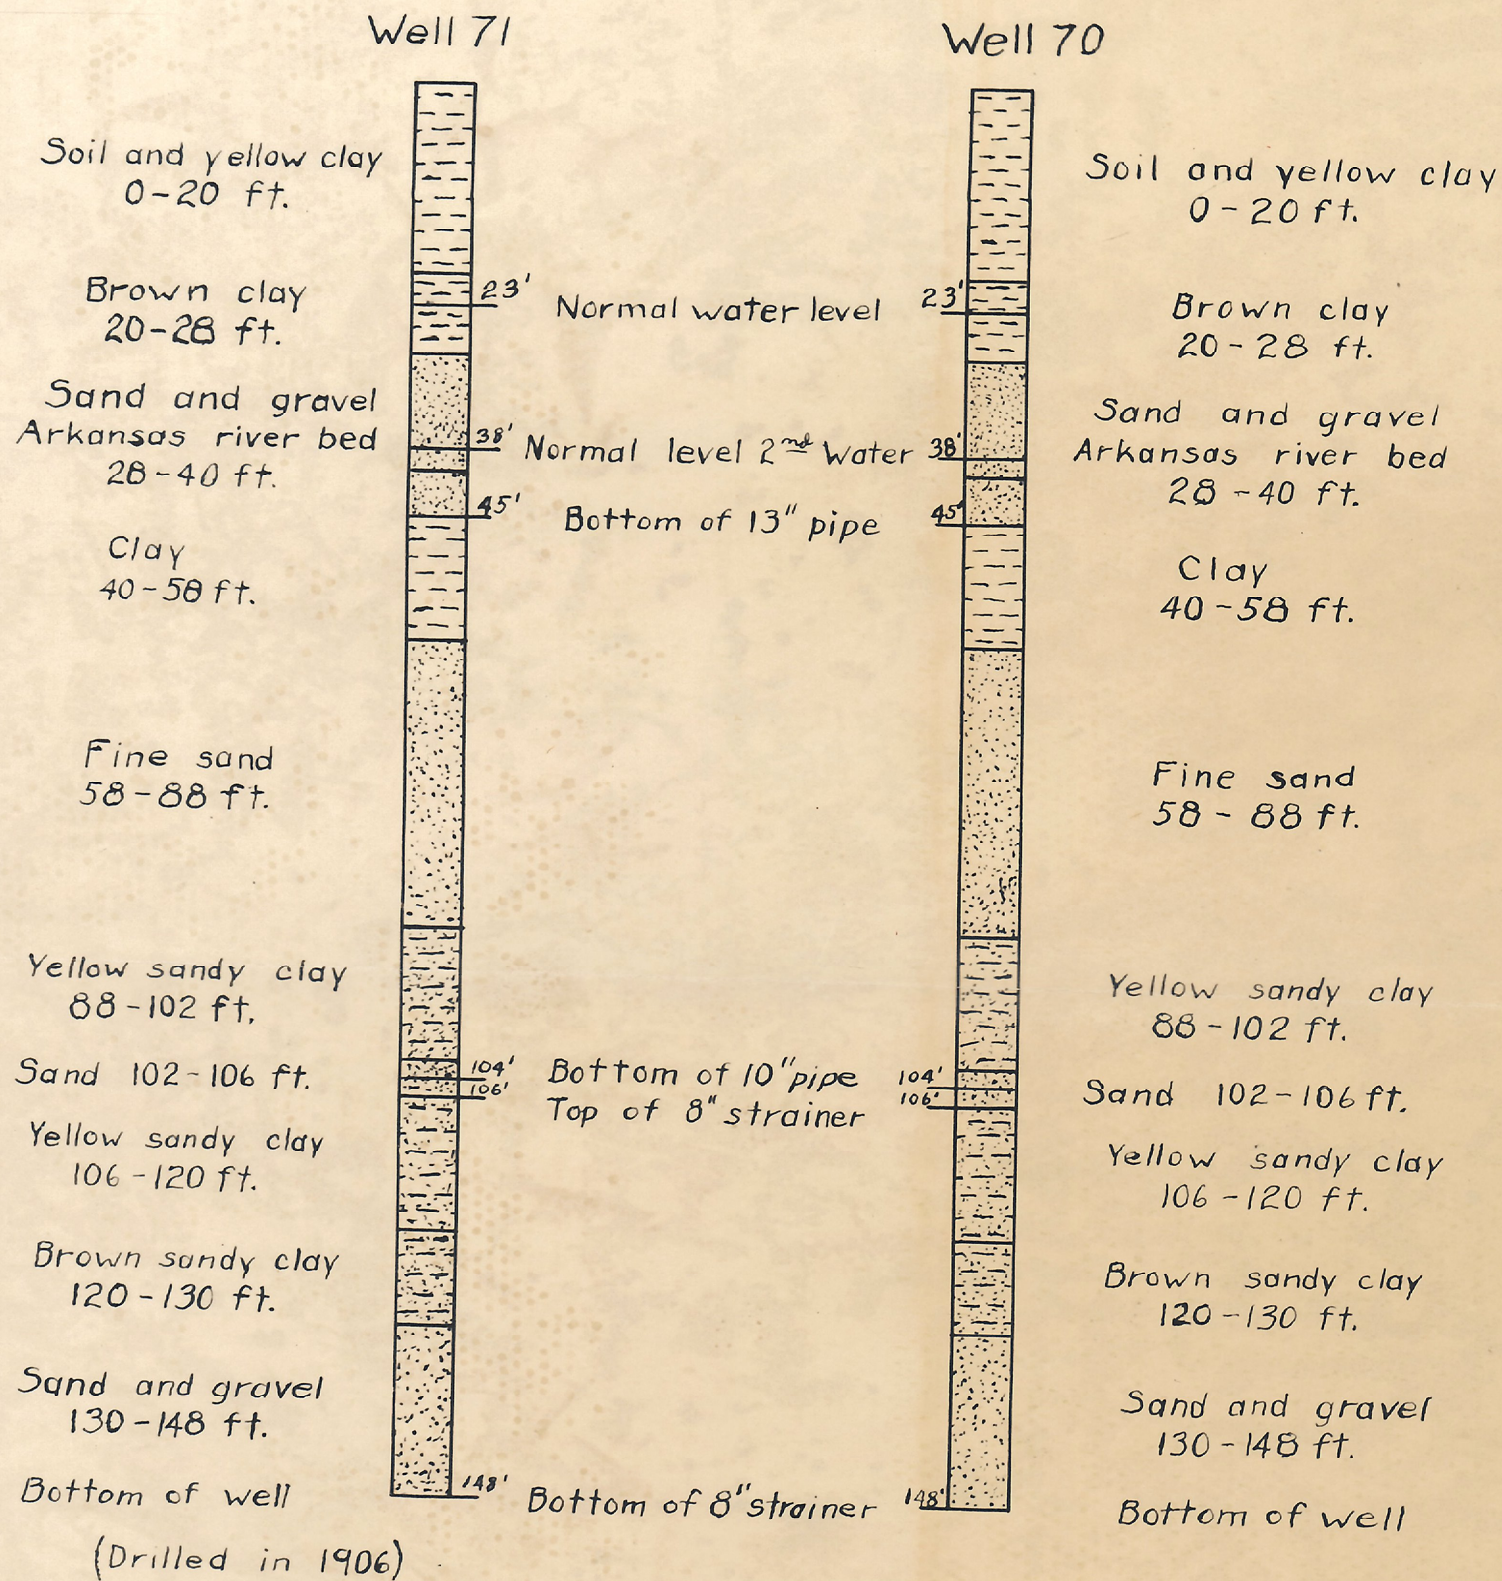 Well 71
Soil and yellow clay
0-20 ft.
Brown clay
20-28 ft.
Sand and gravel
Arkansas river bed
28-40 ft.
Clay
40-58 ft.
Fine sand
58-88 ft.
Yellow sandy clay
88-102 ft.
Sand 102-106 ft.
Yellow sandy clay
106-120 ft.
Brown sandy clay
120-130 ft.
Sand and gravel
130-148 ft.
Bottom of well
(Drilled in 1906)
23' Normal water level 23'
38' Normal level 2nd Water 38'
45' Bottom of 13" pipe 45'
104' Bottom of 10" pipe 104'
106' Top of 8" strainer 106'
148' Bottom of 8" strainer 148'
Well 70
Soil and yellow clay
0-20 ft.
Brown clay
20-28 ft.
Sand and gravel
Arkansas river bed
28-40 ft.
Clay
40-58 ft.
Fine sand
58-88 ft.
Yellow sandy clay
88-102 ft.
Sand 102-106 ft.
Yellow sandy clay
106-120 ft.
Brown sandy clay
120-130 ft.
Sand and gravel
130-148 ft.
Bottom of well